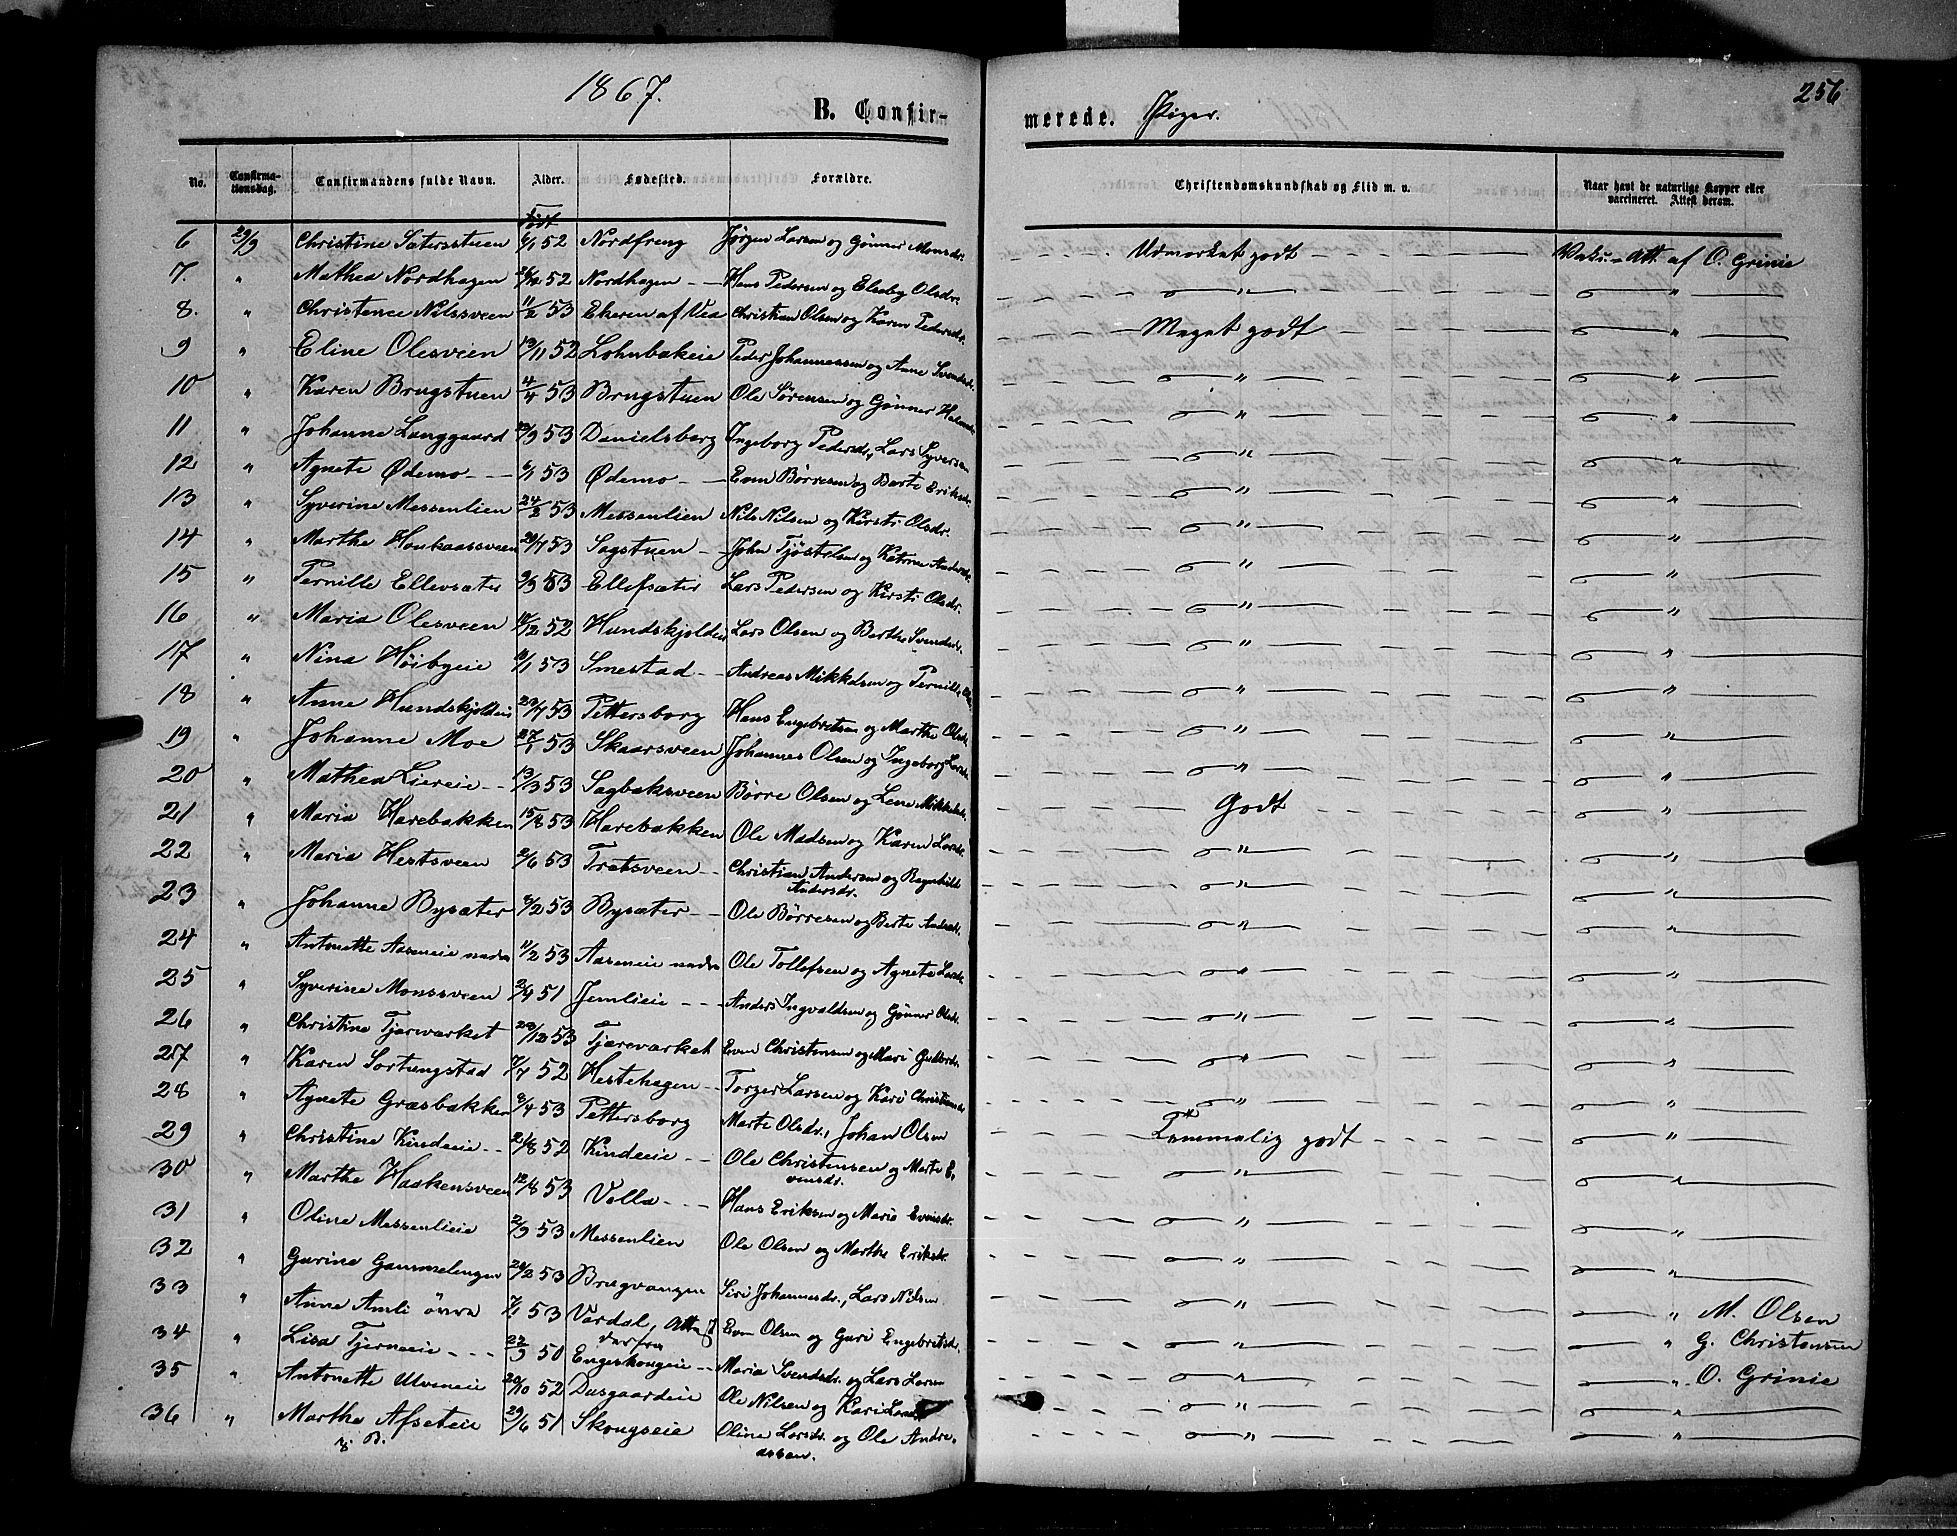 1867.
B. Confir-
merede. Piger.
256
No.
Confirma-
tionsdag.
Confirmandens fulde Navn.
Alder.
Fødested.
Forældre.
Christendomskundskab og Flid m. v.
Naar havt de naturlige Kopper eller
vaccineret. Attest derom.
født
6 29/9 Christine Sætersstuen 6/1 52 Nordfreng Jørgen Larsen og Gønner Monsdr. Udmærket godt Vaks. Att. af O. Grinie
7. " Mathea Nordhagen 52 Nordhagen Hans Pedersen og Elseby Olsdr. " "
8. " Christence Nilssveen 11/2 53 Ekeren af Vea Christian Olsen og Karen Pedersdr. Meget godt "
9 " Eline Olesveen 19/11 52 Lohnbækeie Peder Johannessen og Anne Svendsdr. " "
10 " Karen Brugstuen 4/4 53 Brugstuen Ole Sørensen og Gønner " "
11 " Johanne Langgaard 53 Danielsborg Ingeborg Pedersdr., Lars Syversen " "
12 " Agnete Ødemo 6/1 53 Ødemo Even Børresen og Berte Eriksdr. " "
13 " Syverine Messenlien 24/2 53 Messenlien Nils Nilsen og Kirsti Olsdr. " "
14 " Marthe Honkaassveen 53 Sagstuen John Tjøstelsen og Katrine Andersdr. " "
15 " Pernille Ellevsæter 9/3 53 Ellefsæter Lars Pedersen og Kirsti Olsdr. " "
16 " Maria Olesveen 52 Hundskjolden Lars Olsen og Berthe Svendsdr. " "
17 " Nina Høibyeie 53 Smestad Andreas Mikkelsen og Pernille " "
18 " Anne Hundskjoldeie 53 Pettersborg Hans Engebretsen og Marthe Olsdr. " "
19 " Johanne Moe 27/1 53 Skaarsveen Johannes Olsen og Ingeborg Larsdr. " "
20 " Mathea Liereie 53 Sagbaksveen Børre Olsen og Lene Mikkelsdr. Godt "
21 " Maria Harebakken 15/8 53 Harebakken Ole Madsen og Karen Larsdr. " "
22 " Maria Hestsveen 2/6 53 Tratsveen Christian Andersen og Ragnhild " "
Andersdr.
23 " Johanne Bysæter 6/2 53 Bysæter Ole Børresen og Berte Andersdr. " "
24 " Antonette Aaseneie nedre 11/2 53 Aaseneie nedre Ole Tollefsen og Agnete Larsdr. " "
25 " Syverine Monssveen 2/4 51 Jemlieie Anders Ingvaldsen og Gønner Olsdr. " "
26 " Christine Tjæreværket 29/12 53 Tjæreværket Even Christensen og Mari Gulbrdr. " "
27 " Karen Sortungstad 7/7 52 Hestehagen Torger Larsen og Kari Christiansdr. " "
28 " Agnete Græsbakken 8/4 53 Pettersborg Marte Olsdr., Johan Olsen Temmelig godt "
29 " Christine Kindeeie 21/8 52 Kindeeie Ole Christensen og Marte E- " "
vensdr.
30 " Marthe Haakensveen 12/8 53 Volla Hans Eriksen og Maria Evensdr. " "
31 " Oline Messenlieie 2/9 53 Messenlien Ole Olsen og Marthe Eriksdr. " "
32 " Gurine Gammelengen 20/2 53 Brugvangen Siri Johannesdr., Lars Nilsen " "
33 " Anne Amli øvre 7/1 53 Vardal, Att. Even Olsen og Guri Engebretsdr. " " M. Olsen
derfra
34 " Lisa Tjerneeie 22/3 50 Engeskougeie Maria Svendsdr. og Lars Larsen " " G. Christensen
35 " Antonette Ulveneie 20/10 52 Dusgaardeie Ole Nilsen og Kari Larsdr. " " O. Grinie
36 " Marthe Afseteie 29/6 51 Skougseie Oline Larsdr. og Ole Andre- " "
assen.